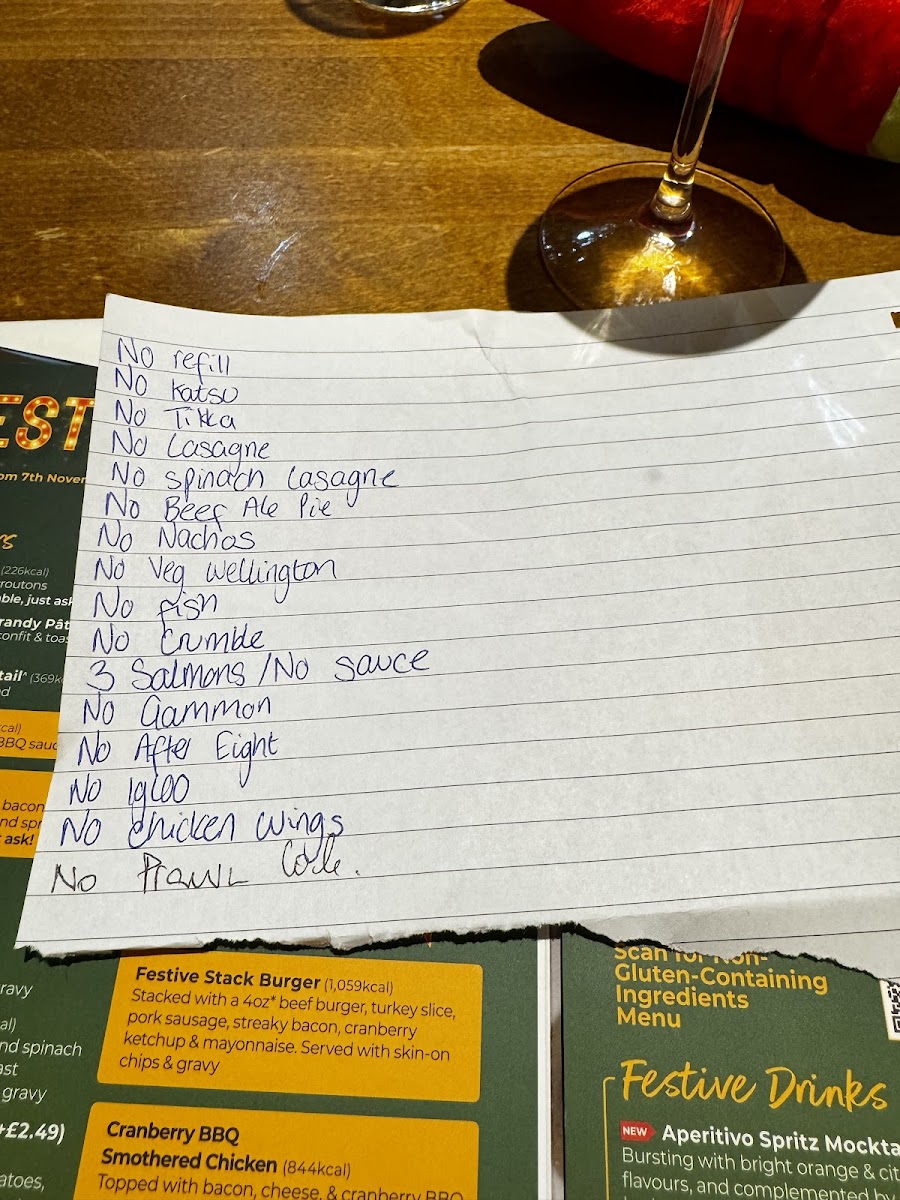 No refill
No katsu
No Tikka
No Lasagne
No spinach Lasagne
No Beef Ale Pie
No Nachos
No Veg wellington
No fish
No Crumble
3 Salmons / No sauce
No Gammon
No After Eight
No Igloo
No chicken wings
No Prawn
EST
om 7th Nover
rs
(226kcal)
routons
ble, just ask
randy Pât
confit & toas
tail^ (369k
d
kcal)
BBQ sauc
bacon
nd spr
ask!
Festive Stack Burger (1,059kcal)
Stacked with a 4oz* beef burger, turkey slice,
pork sausage, streaky bacon, cranberry
ketchup & mayonnaise. Served with skin-on
chips & gravy
Cranberry BBQ
Smothered Chicken (844kcal)
Topped with bacon, cheese, & cranberry BBQ
ravy
al)
nd spinach
ast
gravy
+£2.49)
atoes,
Scan for Non-
Gluten-Containing
Ingredients
Menu
Festive Drinks
NEW Aperitivo Spritz Mockta
Bursting with bright orange & cit
flavours, and complemented by